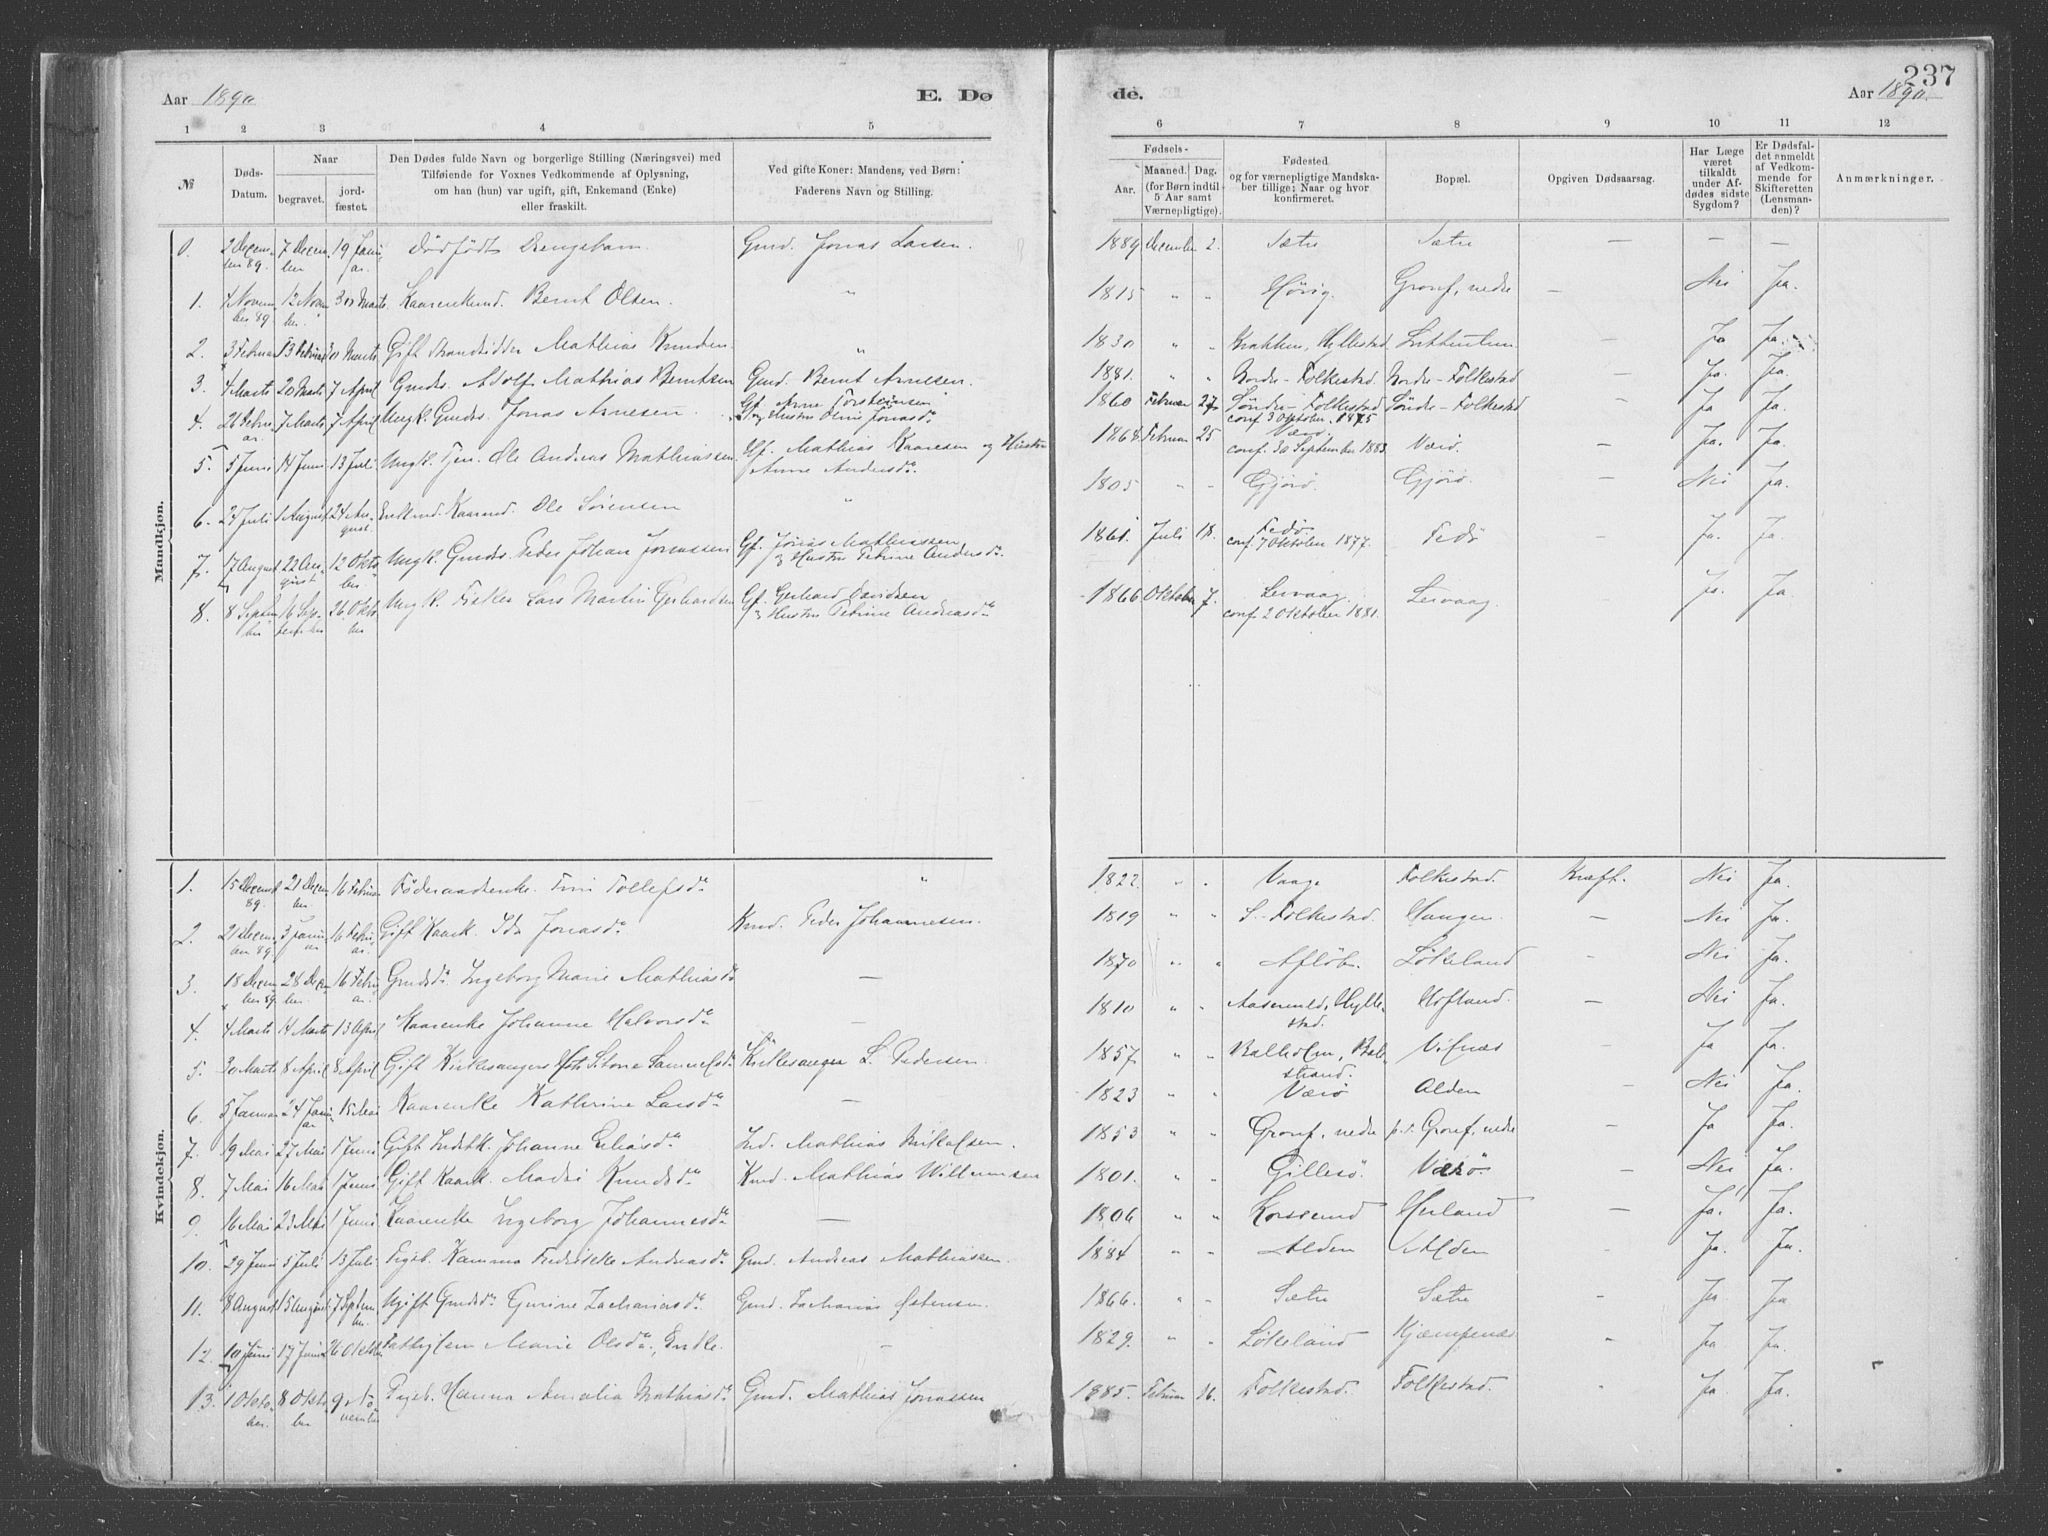 237
Aar 1890
E. Dø
de.
Aar 1890.
1 2 3 4 5 6 7 8 9 10 11 12
№
Døds-Datum.
Naar
begravet.
jord-fæstet.
Den Dødes fulde Navn og borgerlige Stilling (Næringsvei) med
Tilføiende for Voxnes Vedkommende af Oplysning,
om han (hun) var ugift, gift, Enkemand (Enke)
eller fraskilt.
Ved gifte Koner: Mandens, ved Børn:
Faderens Navn og Stilling.
Fødsels-
Aar.
Maaned. Dag.
(for Børn indtil
5 Aar samt
Værnepligtige).
Fødested
og for værnepligtige Mandska-
ber tillige; Naar og hvor
konfirmeret.
Bopæl.
Opgiven Dødsaarsag.
Har Læge
været
tilkaldt
under Af-
dødes sidste
Sygdom?
Er Dødsfal-
det anmeldt
af Vedkom-
mende for
Skifteretten
(Lensman-
den)?
Anmærkninger.
Mandkjøn.
0. 2 Decem-ber 89. 7 Decem-ber 19 Janu-ar. Dødfødt Drengebarn. Gmd. Jonas Larsen. 1889 December 2. Sætre Sætre — — —
1. 4 Novem-ber 89. 12 Novem-ber 30 Marts. Kaarenkemd. Bernt Olsen. " 1815 " " Grov, nedre — Nei Ja.
2. 3 Februar 13 Februar 30 Marts Gift Strandsidder Mathias Knudsen. " 1830 " " Hyllestad — Ja Ja.
3. 4 Marts 20 Marts 7 April Gmdss. Adolf Mathias Berntsen Gmd. Bernt Arnesen. 1881. " " Nordre-Folkestad. Nordre-Folkestad — Ja. Ja.
4. 26 Febru-ar. 7 Marts 7 April Ungk. Gmdss. Jonas Arnesen. Gf. Arne Torsteinsen og Hustru Oline Jonasdr 1860 Februar 27 Søndre-Folkestad conf. 3 Oktober 1875 Søndre-Folkestad — Ja Ja.
5. 5 Juni 14 Juni 13 Juli Ungk. Tjen. Ole Andreas Mathiassen. Gf. Mathias Kaaresen og Hustru Anne Andersdr. 1868 Februar 25 Værø. conf. 30 September 1883. Værø. — Ja. Ja.
6. 24 Juli 1 August 24 Au-gust. Enkemd. Kaarmd. Ole Sørensen " 1805 " " Gjørø. Gjørø. — Nei Ja.
7. 17 August 22 Au-gust 12 Okto-ber Ungk. Gmdss. Peder Johan Jonassen Gf. Jonas Mathiassen og Hustru Petrine Andersdr. 1861. Juli 18. Fedø. conf. 7 Oktober 1877. Fedø — Ja. Ja.
8. 8 Septem-ber 16 Sep-tember 26 Okto-ber Ungk. Fisker Lars Martin Gerhardsen Gf. Gerhard Davidsen og Hustru Petrine Andreasdr 1866 Oktober 7. Leivaag. conf. 2 Oktober 1881. Leivaag. — Ja. Ja
Kvindekjøn.
1. 15 Decemb 89. 21 Decem-ber. 16 Februar Føderaadsenke. Tollefsdr " 1822. " " Vaage Folkestad. Kræft. Nei Ja.
2. 21 Decem-ber 89. 3 Janu-ar 16 Febru-ar. Gift Kaark. Ida Jonasdr Kmd. Peder Johannesen. 1819 " " S-Folkestad. Haugen. — Nei Ja.
3. 18 Decem-ber 89. 28 Decem-ber. 16 Febru-ar. Gmdsdr. Ingeborg Marie Mathiasdr — 1870 " " Afløb. Løkeland — Nei Ja.
4. 4 Marts 14 Marts 13 April Kaarenke Johanne Halvorsdr — 1810 " " Hylle-stad. Hofland. — Nei Ja.
5. 30 Marts 8 April 8 April Gift Kirkesangers Samuelsdr Kirkesanger L. Pedersen. 1857. " " Balholm, Bale-strand. Vilnæs Ja Ja.
6. 5 Januar 24 Janu-ar 15 Mai Kaarenke Kathrine Larsdr — 1823 " " Værø Alden Nei Ja.
7. 19 Mai 27 Mai 1 Juni Gift Johanne Eliasdr Ind. Mathias Nikolsen. 1853 " " Grov, nedre p.t. Grov, nedre Ja Ja.
8. 7 Mai 16 Mai 1 Juni Gift Kaark. Madsi Knudsdr Kmd. Mathias Willumsen 1801. " " Gillesø. Værø — Nei Ja.
9. 16 Mai 23 Mai 1 Juni Kaarenke Ingeborg Johannesdr — 1806 " " Korssund Heiland — Ja. Ja.
10. 29 Juni 5 Juli 13 Juli Pigeb. Kamma Fredrikke Andreasdr Gmd. Andreas Mathiassen. 1884 " " Alden Alden Ja. Ja.
11. 8 August 15 August 7 Septem-ber. Ugift Gmdsdr Gurine Zachariasdr. Gmd. Zacharias Østensen. 1866. " " Sætre Sætre Ja Ja
12. 10 Juni 17 Juni 26 Oktober Fattiglem Marie Olsdr, Enke. — 1829. " " Løkeland Kjempenæs Ja Ja.
13. 1 Okto-ber. 8 Okto-ber 9 No-vember Pigeb. Hanna Amalia Mathiasdr Gmd. Mathias Jonassen 1885. Februar 16. Folkestad. Folkestad. Ja. Ja.